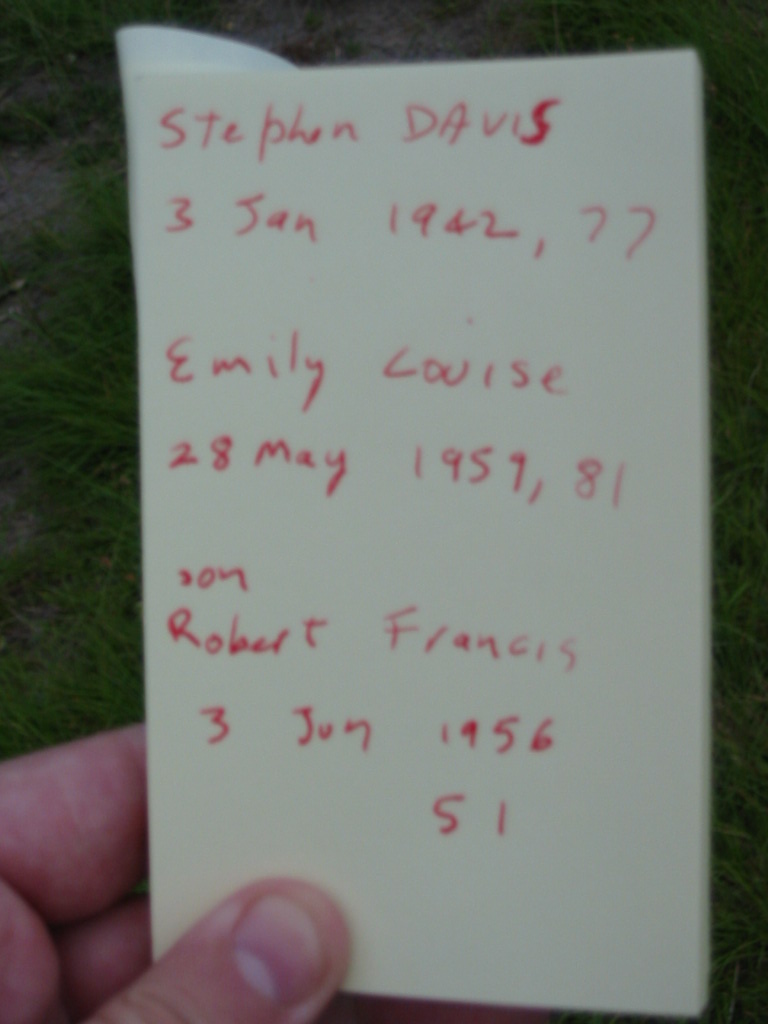 Stephen DAVIS
3 Jan 1942, 77
Emily Louise
28 May 1959, 81
son
Robert Francis
3 Jun 1956
51